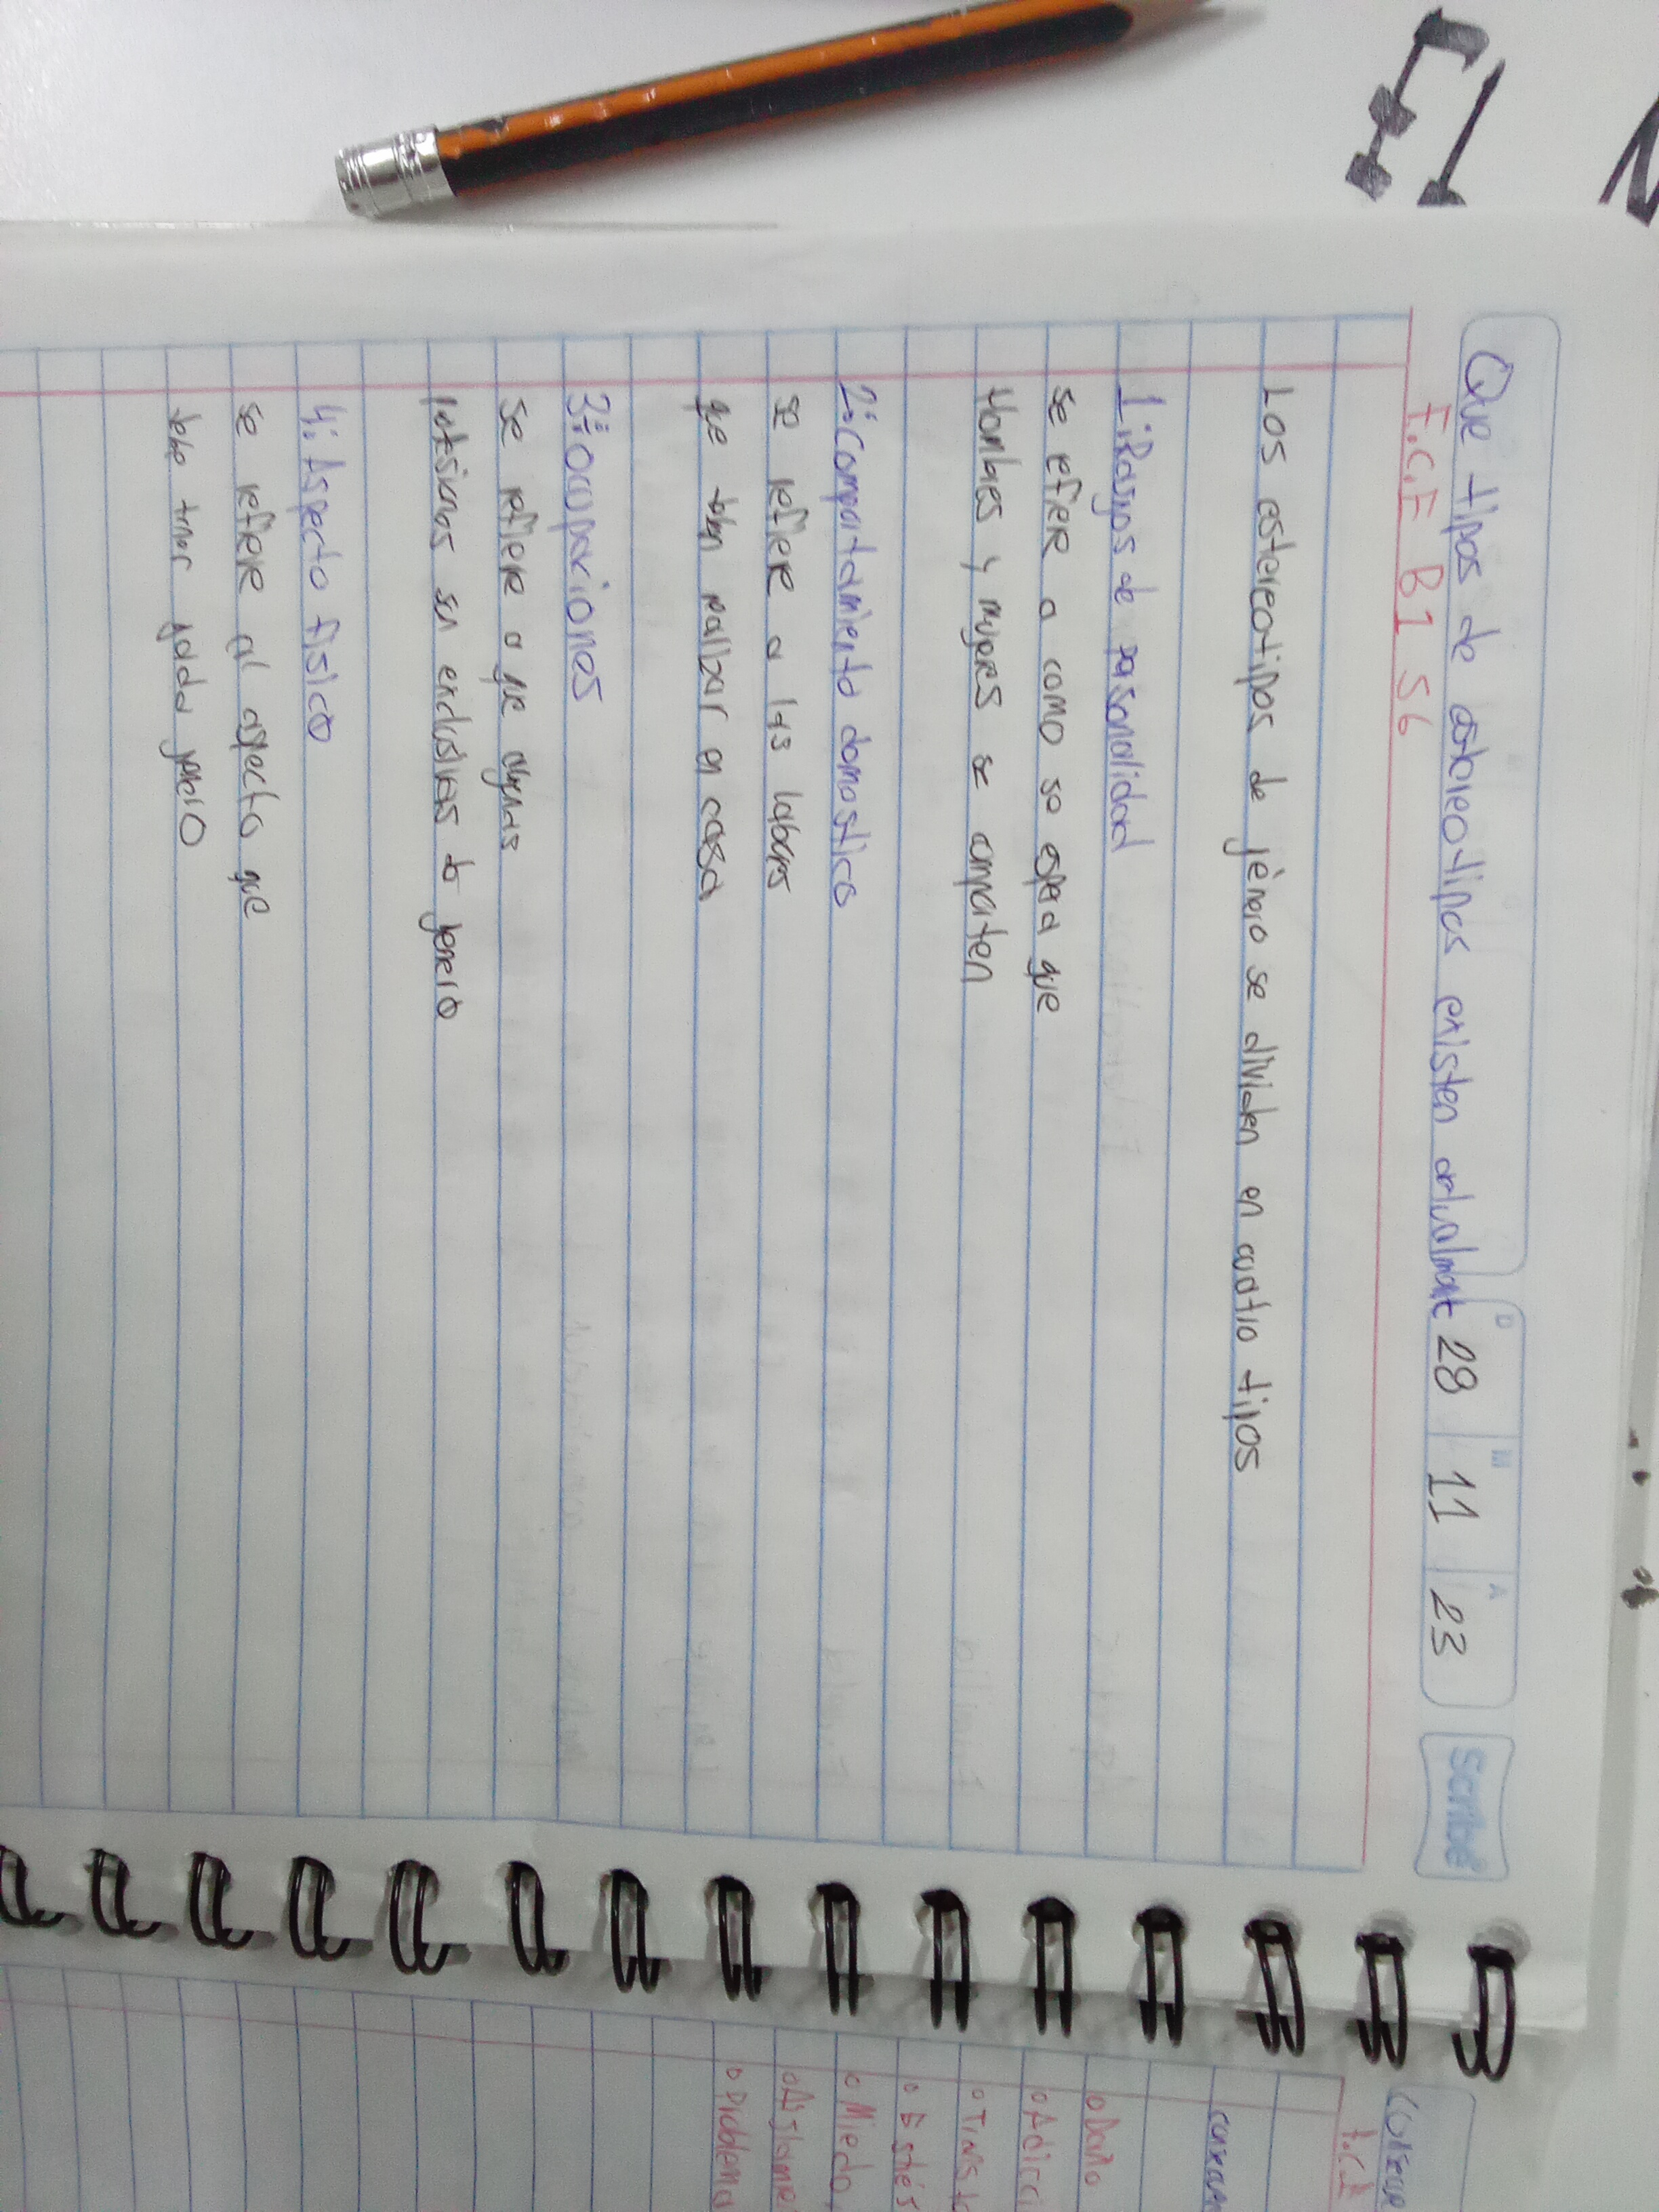 Que tipos de estereotipos existen actualment 28 11 23
D M A
Scribe
F.C.E B1 S6
Los estereotipos de jénero se dividen en cuatro tipos
1: Rasgos de personalidad
se refiere a como se espera que
Hombres y mujeres se comporten
2: Comportamiento domostico
se refiere a las labores
que deben realizar en casa
3: ocupaciones
se refiere a que algunas
profesiones son exclusivas de jenero
4: Aspecto físico
se refiere al aspecto que
debe tener jada jenero
o Daño
o Adicci
o Estés
o Miedo
o Aislame
o Problema